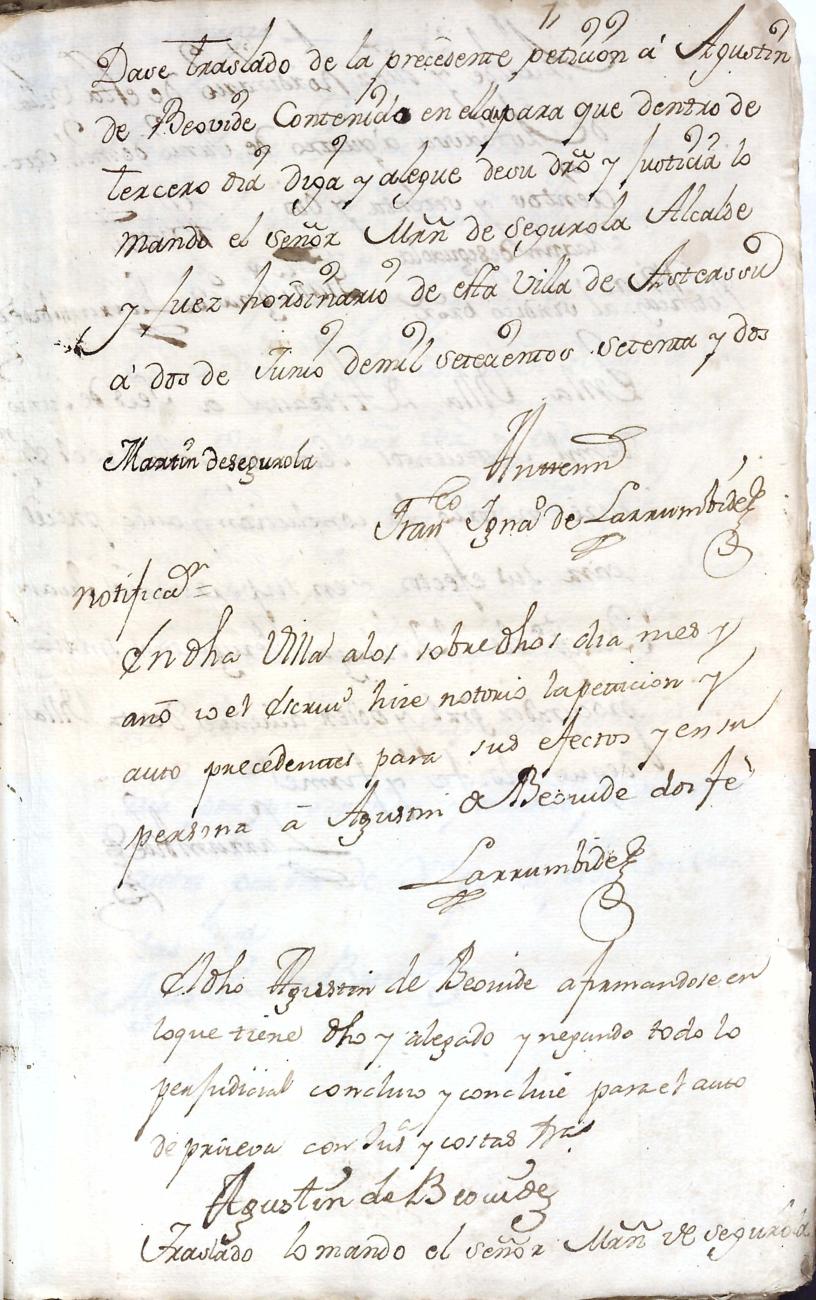 Dase traslado de la precedente peticion a Agustin
de Beovide Contenido en ella para que dentro de
tercero dia diga y alegue de su dro y Justicia lo
mando el señor Mrñ de Segurola Alcalde
y Juez hordinario de esta Villa de Asteassu
a dos de Junio de mil setecientos setenta y dos
Martin de segurola
Antemi
Franco Ignao de Larrumbide
notificaon =
En dha Villa a los sobredhos dia mes y
año yo el escrivo hize notorio la peticion y
auto precedentes para sus efectos y en su
persona a Agustin de Beovide doi fe
Larrumbide
El dho Agustin de Beovide afirmandose en
lo que tiene dho y alegado y negando todo lo
perjudicial concluio y concluie para el auto
de prueva con Jusa y costas
Agustin de Beovide
Traslado lo mando el señor Mrñ de segurola